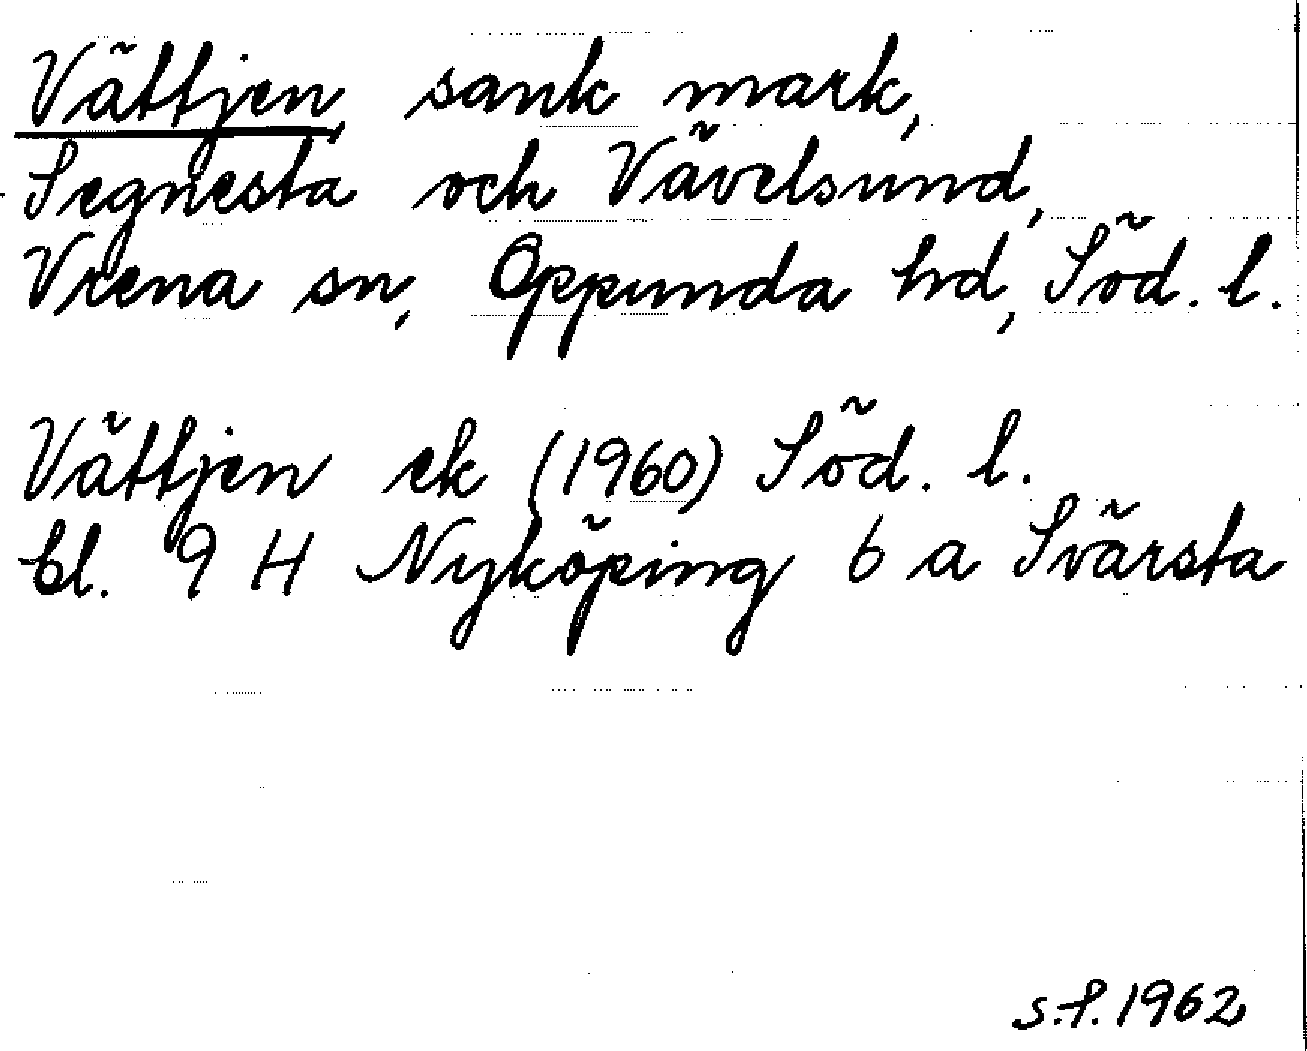 Vättjen, sank mark,
Segnesta och Vävelsund,
Vrena sn, Oppunda hd, Söd. l.
Vättjen ek (1960) Söd. l.
bl. 9 H Nyköping 6 a Svärsta
s.f. 1962